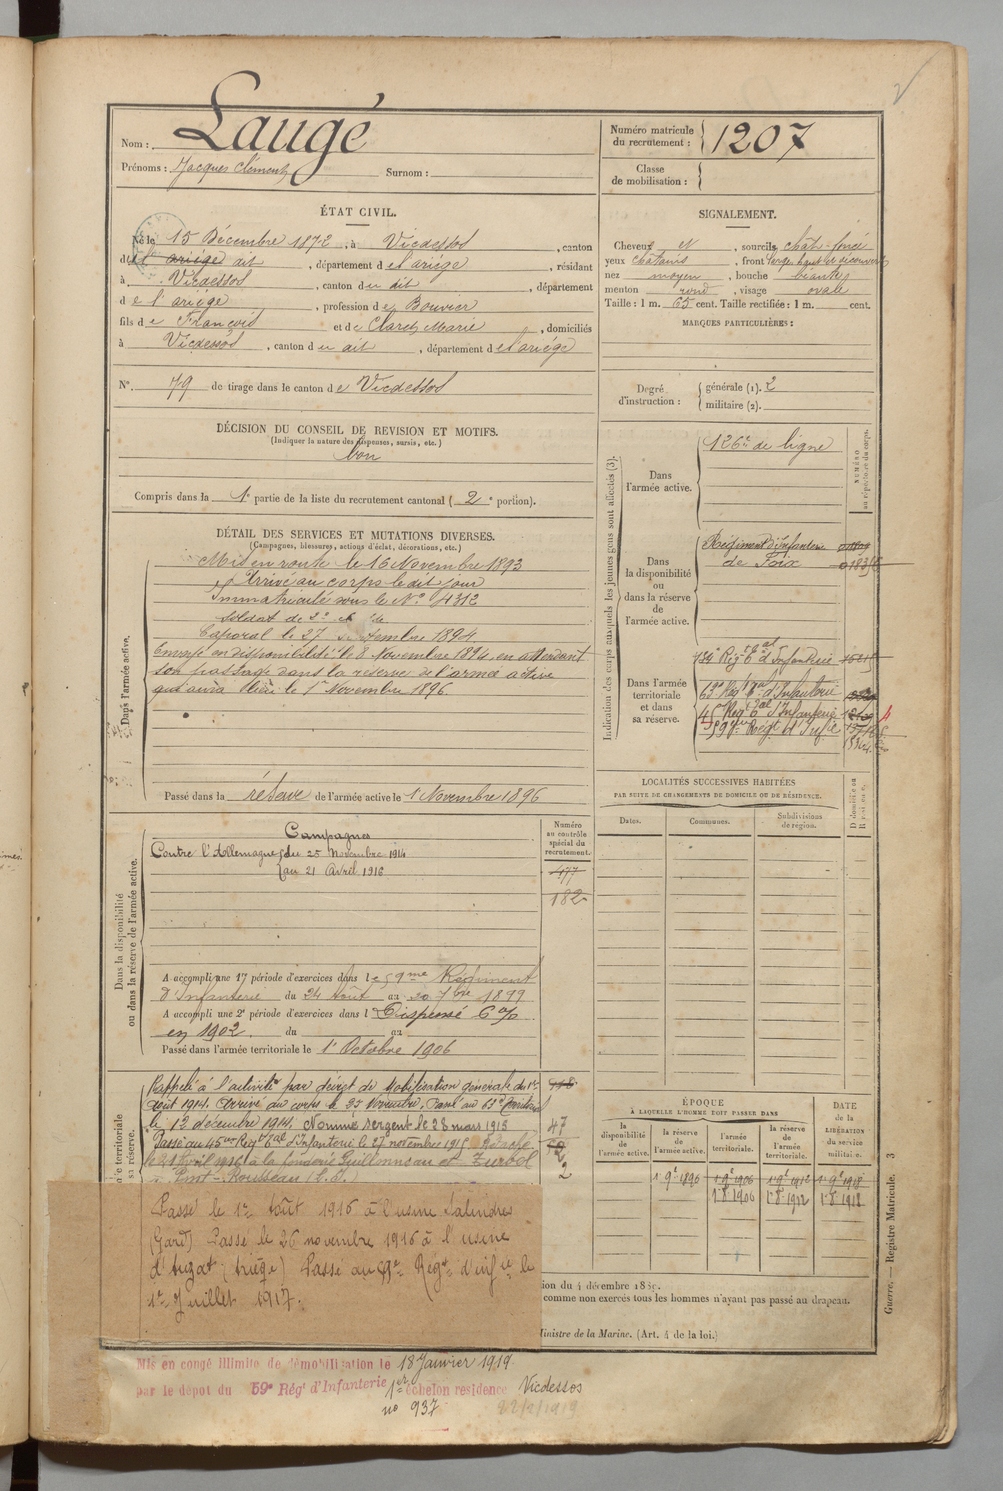 Nom : Laugé
Prénoms : Jacques Clément Surnom :
Numéro matricule du recrutement : 1207
Classe de mobilisation :
ÉTAT CIVIL.
Né le 15 Décembre 1872, à Vicdessos, canton
du dit, département de l'ariége, résidant
à Vicdessos, canton du dit, département
de l'ariége, profession de Bouvier
fils de François et de Claret Marie, domiciliés
à Vicdessos, canton du dit, département de l'ariége
N° 79 de tirage dans le canton de Vicdessos
DÉCISION DU CONSEIL DE REVISION ET MOTIFS.
(Indiquer la nature des dispenses, sursis, etc.)
bon
Compris dans la 1e partie de la liste du recrutement cantonal (2e portion).
SIGNALEMENT.
Cheveux N, sourcils chat. foncé
yeux chatains, front large haut et découvert
nez moyen, bouche béante
menton rond, visage ovale
Taille : 1 m. 65 cent. Taille rectifiée : 1 m. cent.
MARQUES PARTICULIÈRES :
Degré d'instruction : générale (1). 2
militaire (2).
DÉTAIL DES SERVICES ET MUTATIONS DIVERSES.
(Campagnes, blessures, actions d'éclat, décorations, etc.)
Dans l'armée active.
Mis en route le 16 Novembre 1893
Arrivé au corps le dit jour
Immatriculé sous le N° 4312
soldat de 2e
Caporal le 27 septembre 1894
Envoyé en disponibilité le 8 Novembre 1894, en attendant
son passage dans la réserve de l'armée active
qui aura lieu le 1er Novembre 1896
Passé dans la réserve de l'armée active le 1 Novembre 1896
Indication des corps auxquels les jeunes gens sont affectés (3).
NUMÉRO au répertoire du corps.
Dans l'armée active.
126e de ligne
Dans la disponibilité ou dans la réserve de l'armée active.
Régiment d'Infanterie
de Foix
Dans l'armée territoriale et dans sa réserve.
134e Régt tal d'Infanterie
63e Régt tal d'Infanterie
45e Régt tal d'Infanterie
59me Régt d'Infie
LOCALITÉS SUCCESSIVES HABITÉES
PAR SUITE DE CHANGEMENTS DE DOMICILE OU DE RÉSIDENCE.
Dates. Communes. Subdivisions de région. D domicile ou R résidence.
Dans la disponibilité ou dans la réserve de l'armée active.
Numéro au contrôle spécial du recrutement.
477
182
Campagnes
Contre l'Allemagne du 25 Novembre 1914
au 21 Avril 1916
A accompli une 1re période d'exercices dans le 59me Régiment
d'Infanterie du 24 Août au 20 7bre 1899
A accompli une 2e période d'exercices dans l Dispensé 6%
en 1902 du au
Passé dans l'armée territoriale le 1er Octobre 1906
Rappelé à l'activité par décret de Mobilisation générale du 1er
Août 1914. Arrivé au corps le 25 Novembre. Passé au 63e Territorial
le 12 décembre 1914. Nommé sergent le 28 mars 1915
Passé au 45me Régt tal d'Infanterie le 27 novembre 1915. Détaché
le 21 Avril 1916 à la fonderie Guillonneau et
47
2
Passé le 1er Août 1916 à l'usine Salindres
(Gard) Passé le 26 novembre 1916 à l'usine
d'Auzat (Ariège) Passé au 59e Régt d'infie le
1er Juillet 1917.
ÉPOQUE
À LAQUELLE L'HOMME DOIT PASSER DANS
DATE de la LIBÉRATION du service militaire.
la disponibilité de l'armée active. la réserve de l'armée active. l'armée territoriale. la réserve de l'armée territoriale.
1 9e 1896 1 9e 1906 1 9e 1912 1 9e 1918
1 8 1906 1 8 1912 1 8 1918
comme non exercés tous les hommes n'ayant pas passé au drapeau.
Ministre de la Marine. (Art. 4 de la loi.)
Guerre. — Registre Matricule. 3
Mis en congé illimité de démobilisation le 18 Janvier 1919
par le dépot du 59e Régt d'Infanterie 1er échelon residence Vicdessos
no 937 22/2/1919